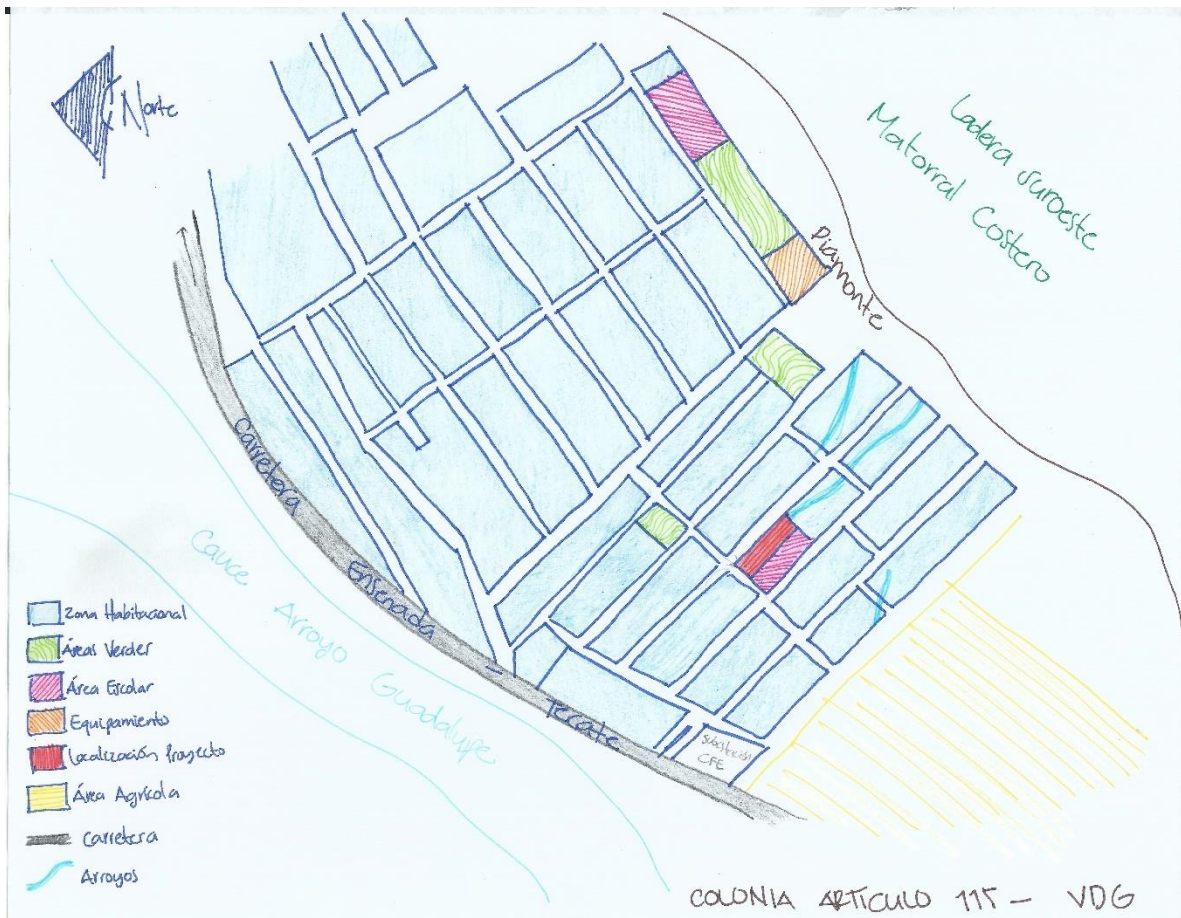 Norte
Ladera suroeste
Matorral Costero
Piamonte
Carretera Ensenada - Teccate
Cauce Arroyo Guadalupe
Subestación
CFE
Zona Habitacional
Áreas Verder
Área Escolar
Equipamiento
Localización Proyecto
Área Agrícola
Carretera
Arroyos
COLONIA ARTÍCULO 115 - VDG